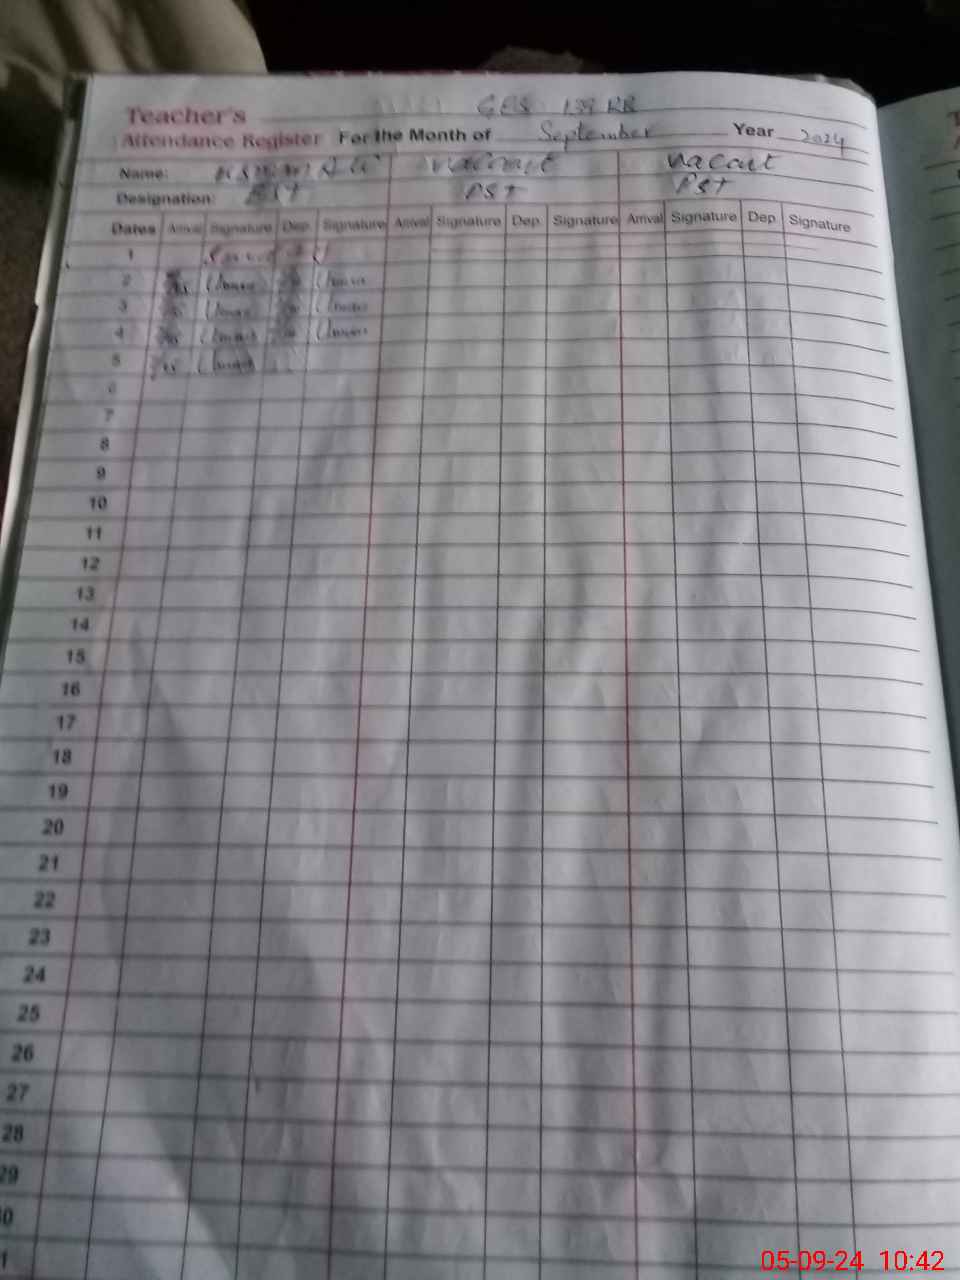 GES 139 RB
Teacher's
Attendance Register For the Month of September Year 2024
Name: Vacant Vacant
Designation: EST PST PST
Dates Arrival Signature Dep. Signature Arrival Signature Dep. Signature Arrival Signature Dep. Signature
1 Sunday
2
3
4
5
6
7
8
9
10
11
12
13
14
15
16
17
18
19
20
21
22
23
24
25
26
27
28
29
30
1
05-09-24 10:42